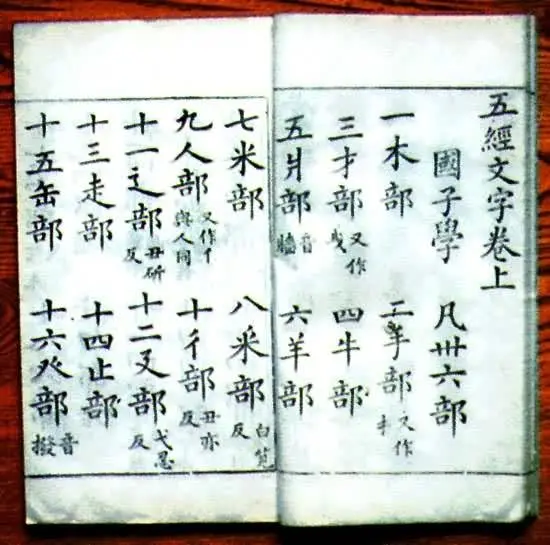 五經文字卷上
國子學 凡卅六部
一木部 二手部 又作扌
三才部 又作 四牛部
五爿部 音牆 六羊部
七米部 八釆部 白莧反
九人部 又作亻與人同 十彳部 丑亦反
十一辶部 丑斫反 十二廴部 弋忍反
十三走部 十四止部
十五缶部 十六癶部 音撥